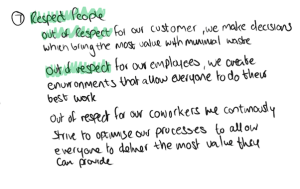 ⑦ Respect People
out of Respect for our customer, we make decisions
which bring the most value with minimal waste
Out of respect for our employees, we create
environments that allow everyone to do their
best work
Out of respect for our coworkers we continously
strive to optimise our processes to allow
everyone to deliver the most value they
can provide